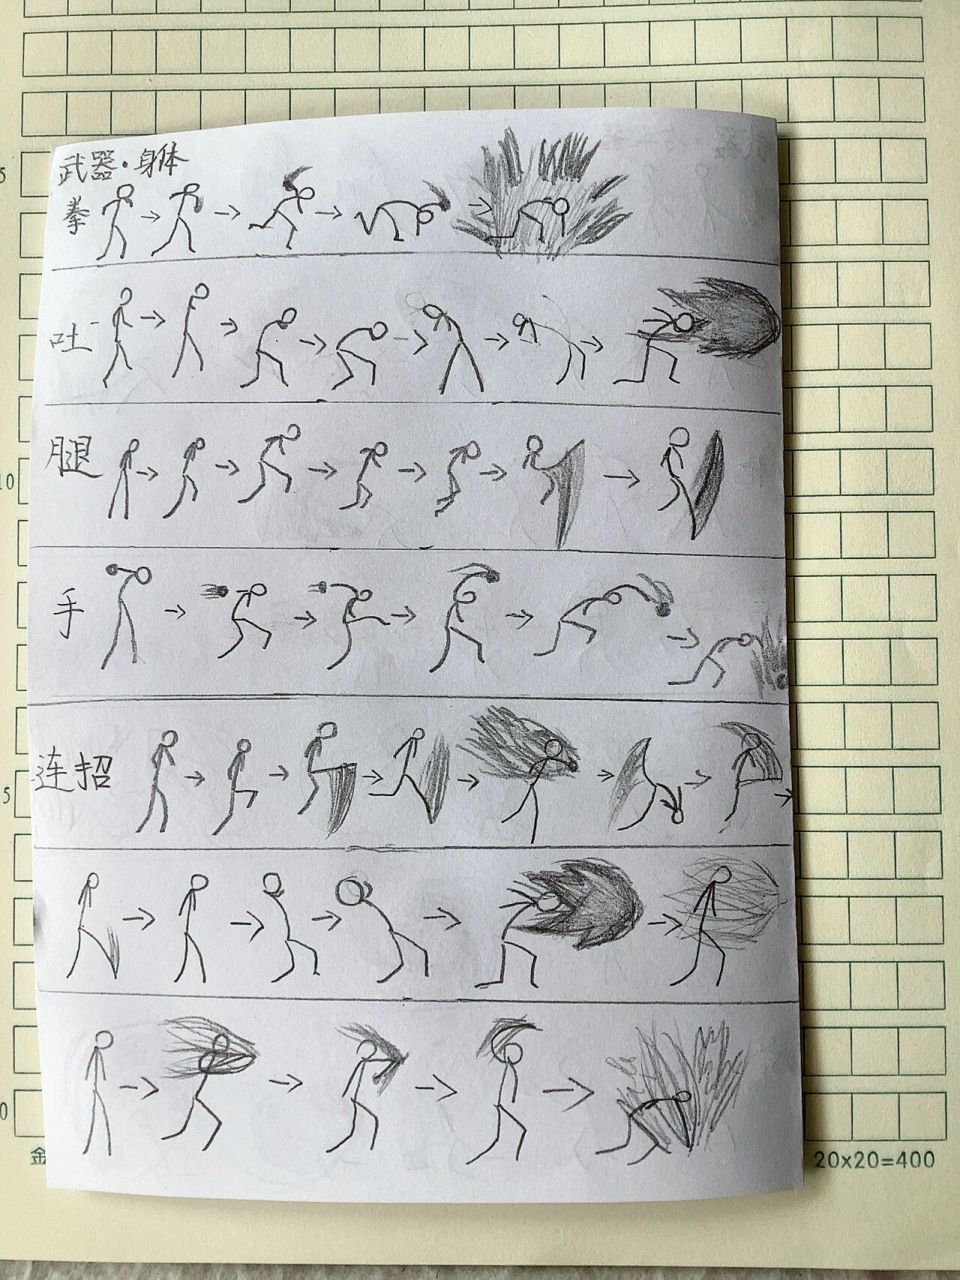 武器·身体
拳
吐
腿
手
连招
5
10
5
0
20x20=400